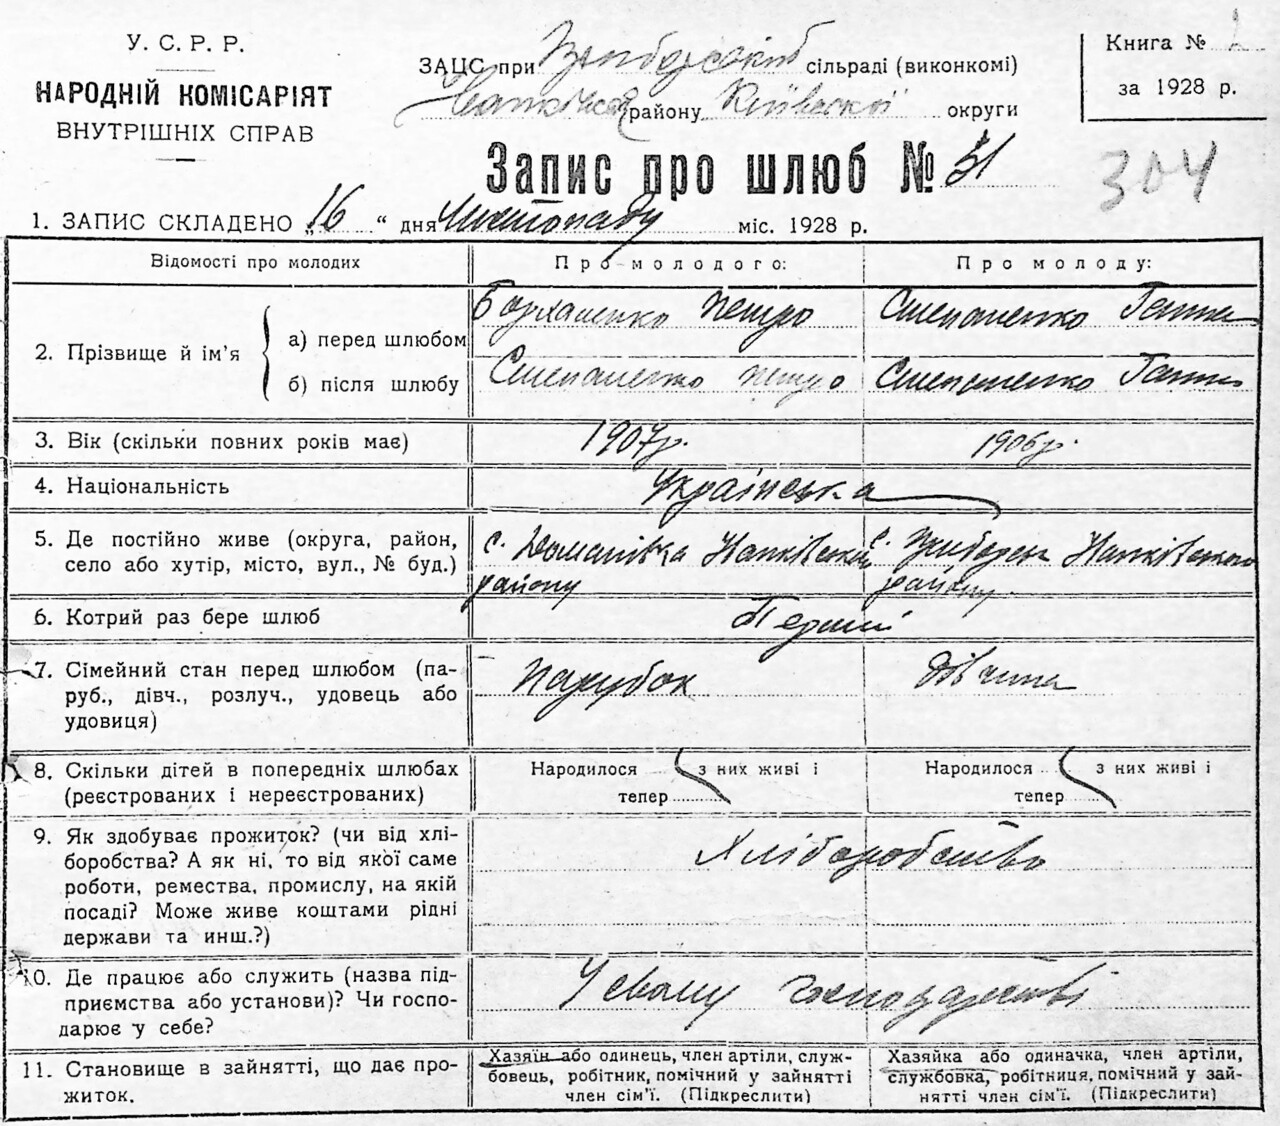 У. С. Р. Р.
НАРОДНІЙ КОМІСАРІЯТ
ВНУТРІШНІХ СПРАВ
ЗАЦС при сільраді (виконкомі)
району Київської округи
Книга №
за 1928 р.
Запис про шлюб № 51
304
1. ЗАПИС СКЛАДЕНО „16“ дня Листопаду міс. 1928 р.
Відомості про молодих
Про молодого:
Про молоду:
2. Прізвище й ім’я
а) перед шлюбом
Петро
Степаненко Ганна
б) після шлюбу
Степаненко Петро
Степаненко Ганна
3. Вік (скільки повних років має)
1907р.
1906р.
4. Національність
Українська
5. Де постійно живе (округа, район,
село або хутір, місто, вул., № буд.)
с. Доманівка
району
с.
району
6. Котрий раз бере шлюб
Перший
7. Сімейний стан перед шлюбом (па-
руб., дівч., розлуч., удовець або
удовиця)
Парубок
Дівчина
8. Скільки дітей в попередніх шлюбах
(реєстрованих і нереєстрованих)
Народилося з них живі і
тепер
Народилося з них живі і
тепер
9. Як здобуває прожиток? (чи від хлі-
боробства? А як ні, то від якої саме
роботи, ремества, промислу, на якій
посаді? Може живе коштами рідні
держави та инш.?)
Хліборобство
10. Де працює або служить (назва під-
приємства або установи)? Чи госпо-
дарює у себе?
У свому господарстві
11. Становище в зайнятті, що дає про-
житок.
Хазяїн або одинець, член артіли, служ-
бовець, робітник, помічний у зайнятті
член сім’ї. (Підкреслити)
Хазяйка або одиначка, член артіли,
службовка, робітниця, помічний у зай-
нятті член сім’ї. (Підкреслити)